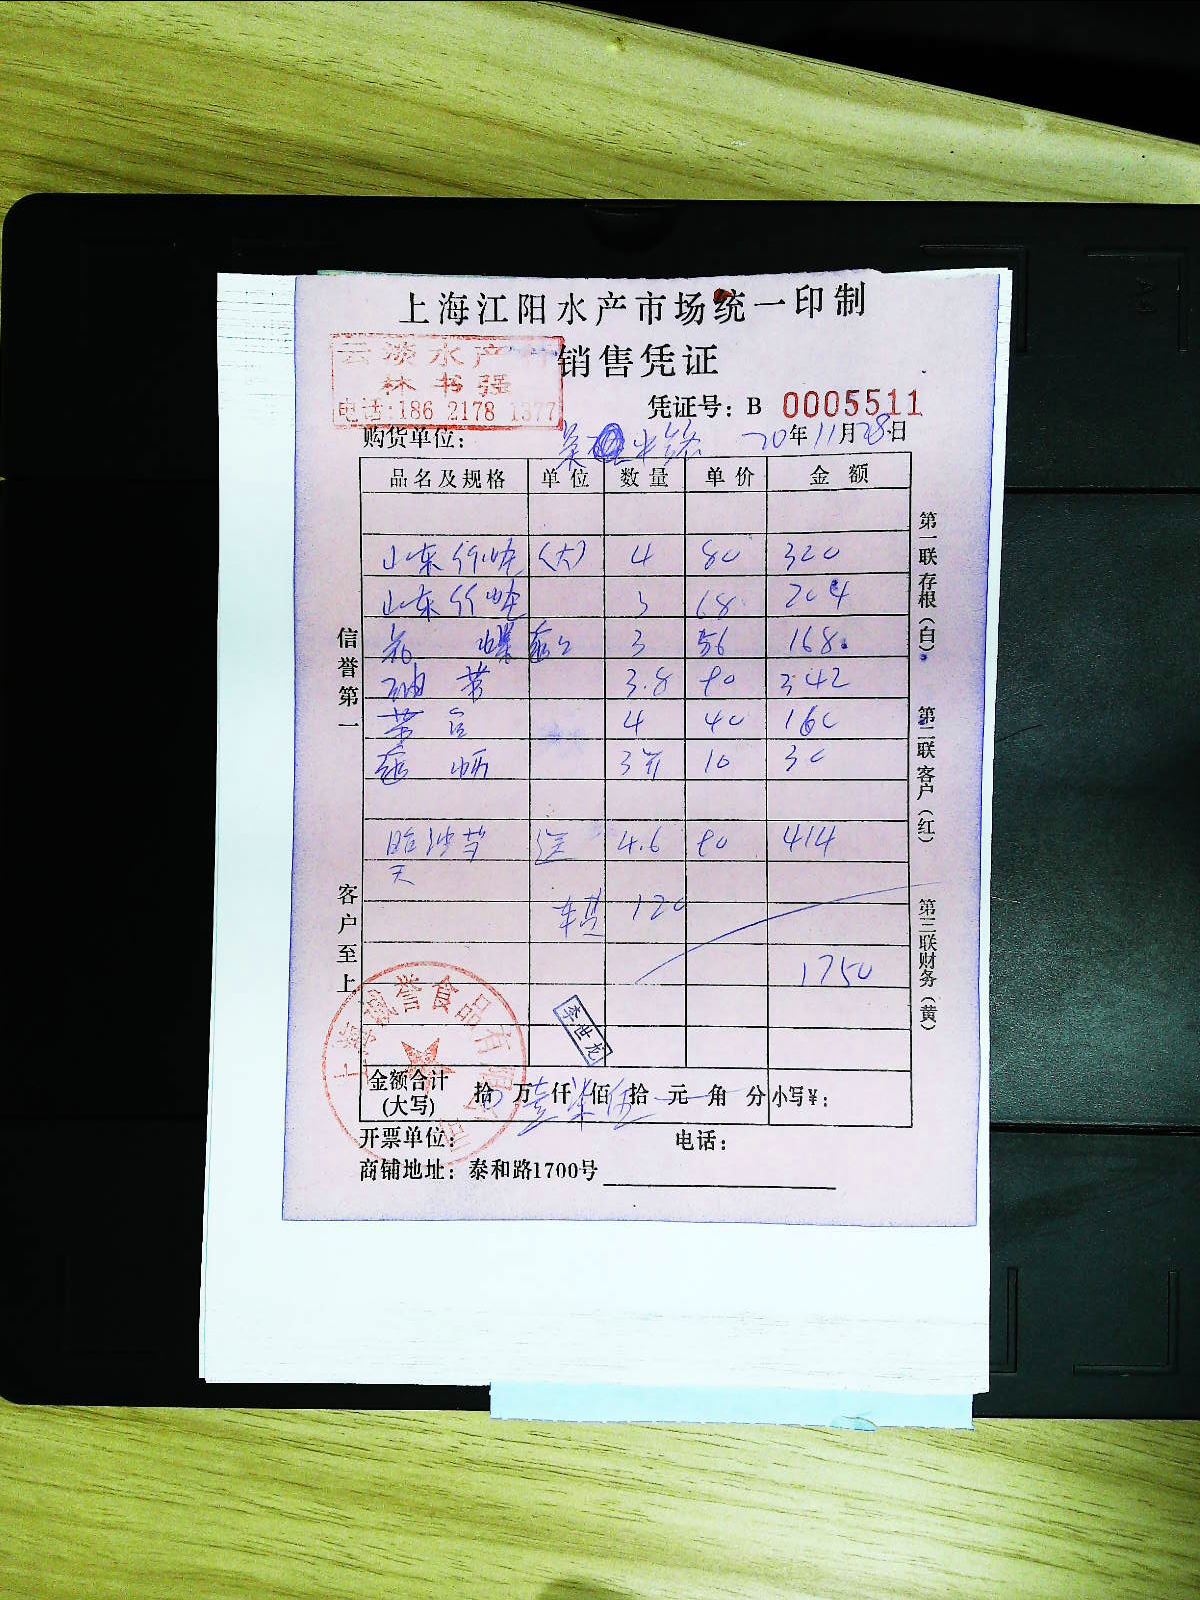 上海江阳水产市场统一印制
云淡水产
销售凭证
林书强
电话:186 2178 1377
凭证号：B 0005511
购货单位： 20年11月28日
品名及规格 单位 数量 单价 金额
山东竹蛏 (大) 4 80 320
山东竹蛏 3 68 204
螺 3 56 168
3.8 90 342
4 40 160
3斤 10 30
4.6 90 414
天
车费 120
1750
信誉第一
客户至上
第一联存根（白）
第二联客户（红）
第三联财务（黄）
上海诚誉食品有限公司
李世龙
金额合计(大写) 拾 万 壹仟 柒佰 伍拾 元 角 分 小写¥：
开票单位： 电话：
商铺地址：泰和路1700号